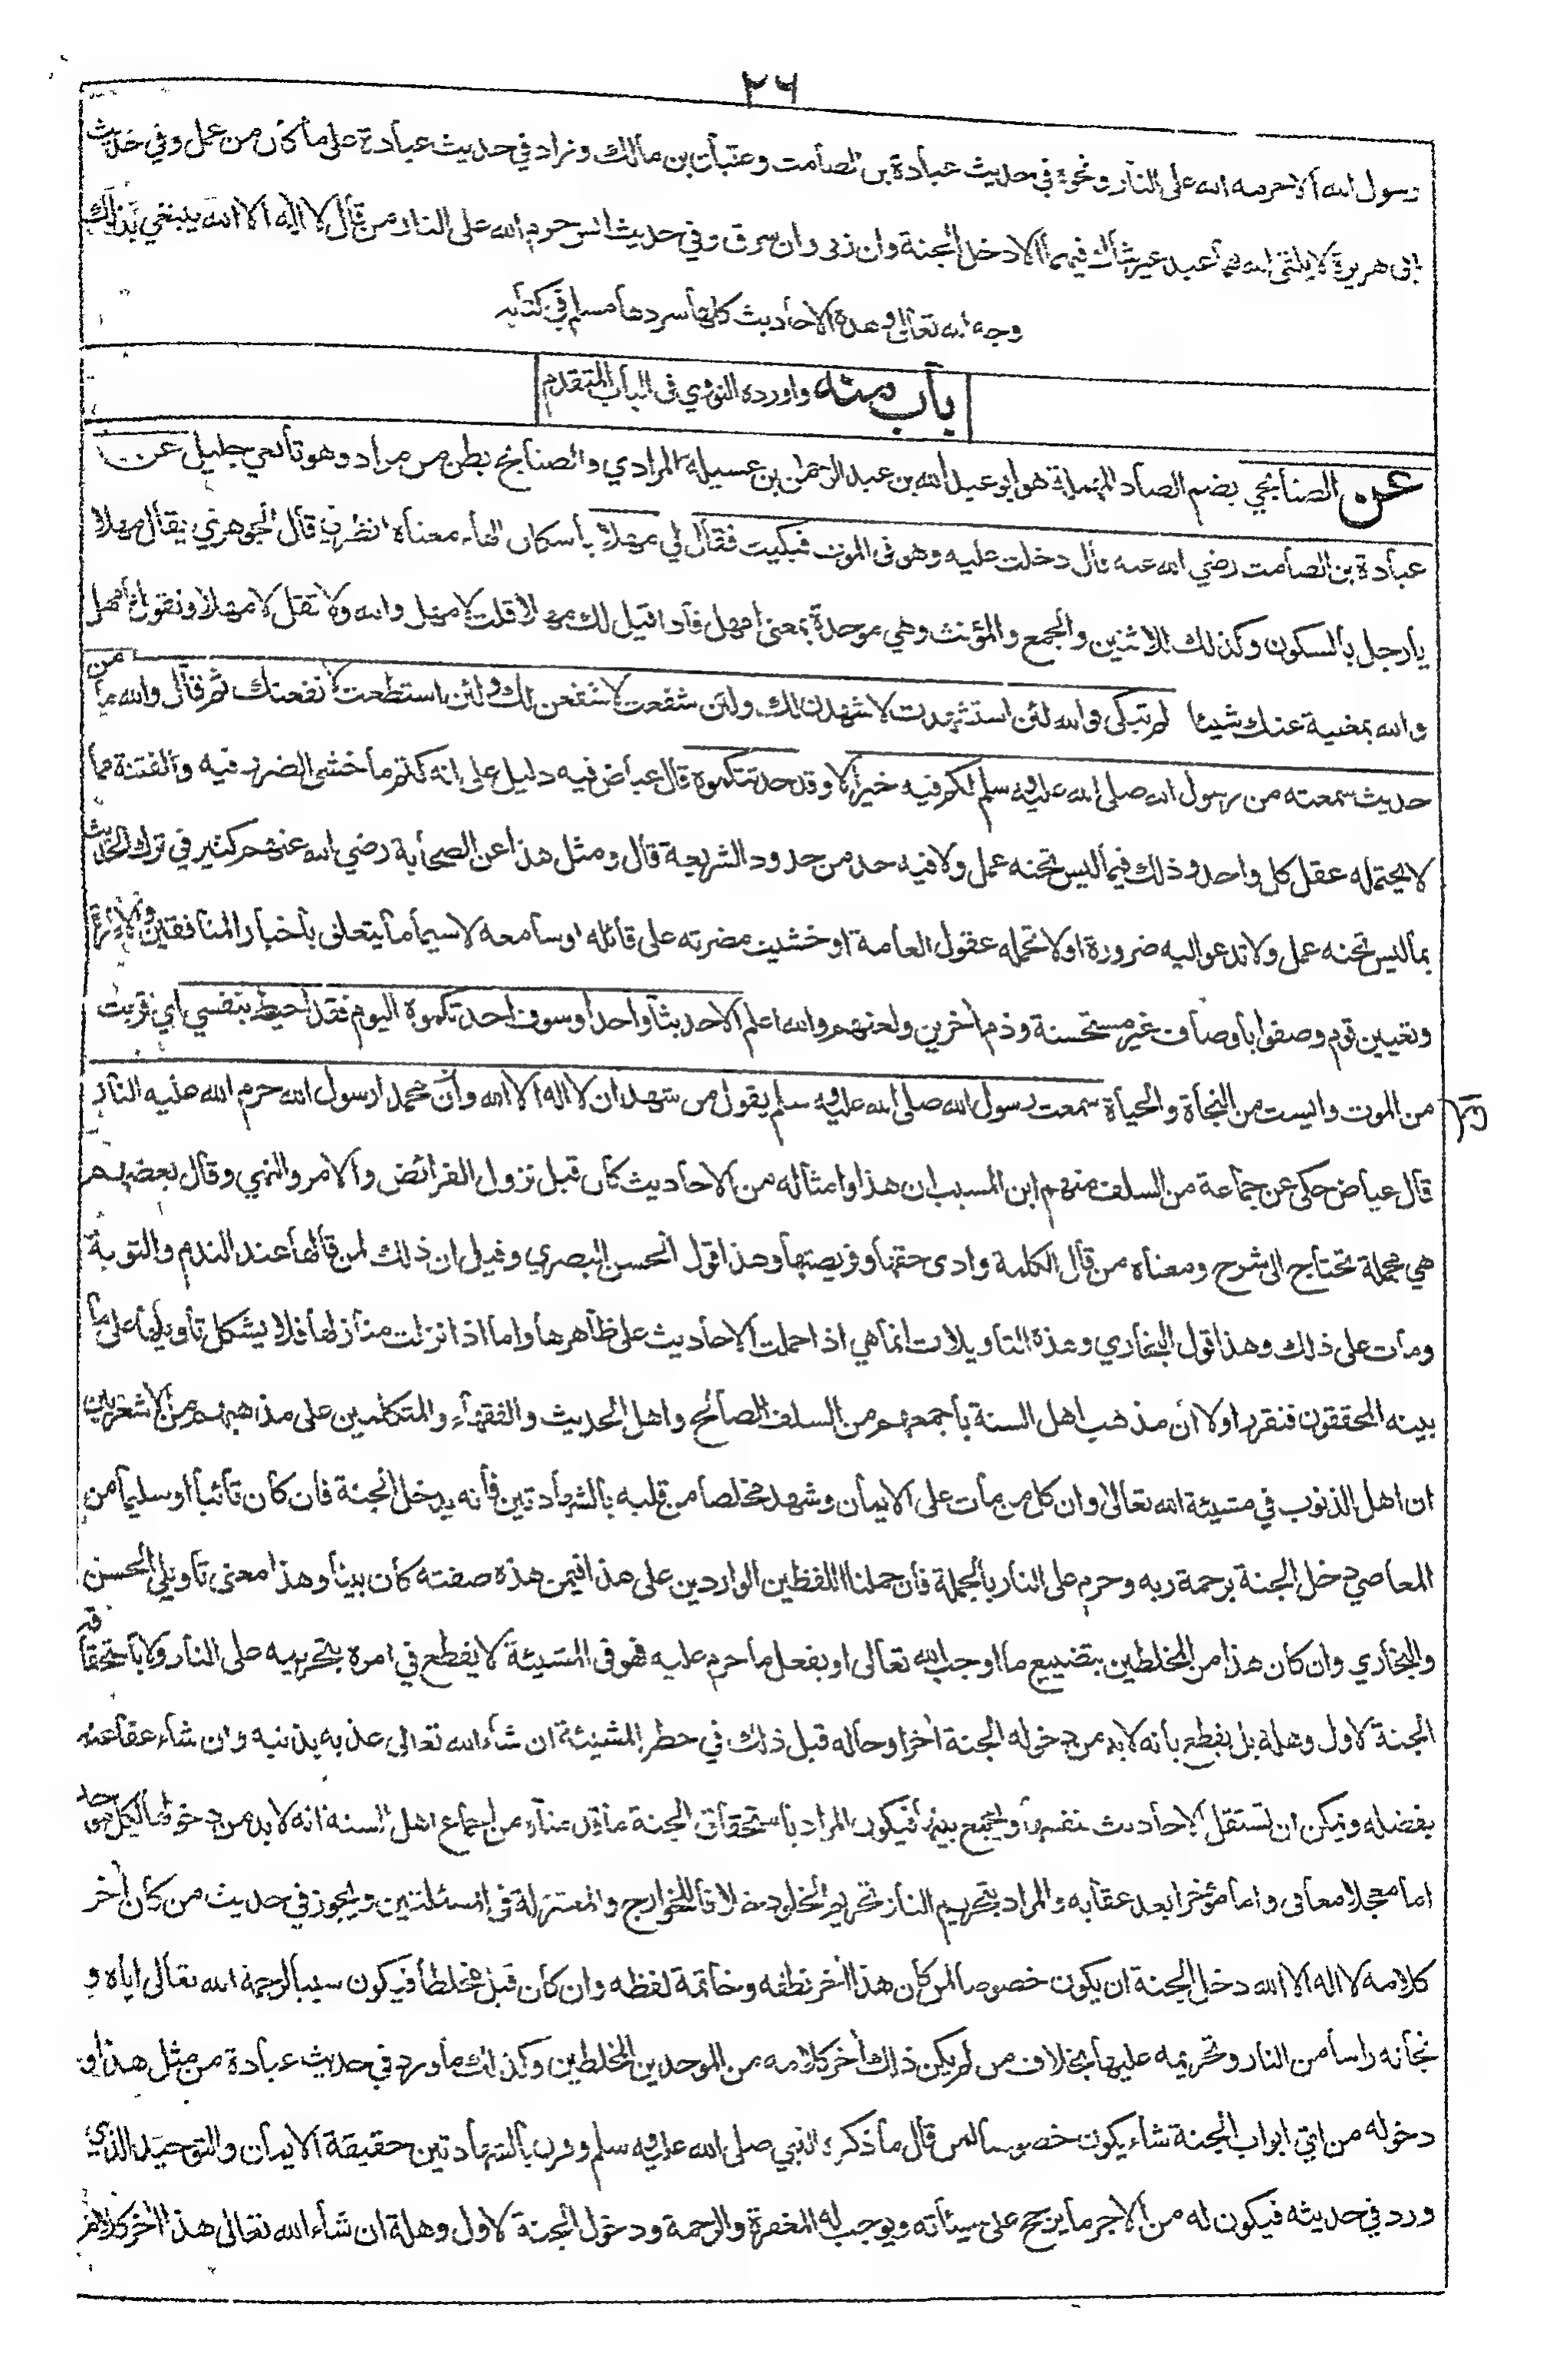 ٢٦
رسول الله الا حرمه الله على النار ونحوه في حديث عبادة بن الصامت وعتبان بن مالك وزاد في حديث عبادة على ما كان من عمل وفي حديث
ابى هريرة لا يلقى الله بهما عبد غير شاك فيهما الا دخل الجنة وان زنى وان سرق وفي حديث انس حرم الله على النار من قال لا اله الا الله يبتغي بذلك
وجه الله تعالى وهذه الاحاديث كلها سردها مسلم في كتابه
باب منه واورده النووي في الباب المتقدم
عن الصنابحي بضم الصاد المهملة هو ابو عبد الله بن عبد الرحمن بن عسيلة المرادي والصنابح بطن من مراد وهو تابعي جليل عن
عبادة بن الصامت رضي الله عنه قال دخلت عليه وهو في الموت فبكيت فقال لي مهلا باسكان الهاء معناه انظرني قال الجوهري يقال مهلا
يا رجل بالسكون وكذلك للاثنين والجمع والمؤنث وهي موحدة بمعنى امهل فاذا قيل لك مهلا قلت لا مهل والله ولا تقل لا مهلا وتقول ما مهل
والله بمغنية عنك شيئا لم تبكى فوالله لئن استشهدت لاشهدن لك ولئن شفعت لاشفعن لك ولئن استطعت لانفعنك ثم قال والله ما من
حديث سمعته من رسول الله صلى الله عليه وسلم لكم فيه خير الا وقد حدثتكموه قال عياض فيه دليل على انه كتم ما خشى الضرر فيه والفتنة مما
لا يحتمله عقل كل واحد وذلك فيما ليس تحته عمل ولا فيه حد من حدود الشريعة قال ومثل هذا عن الصحابة رضي الله عنهم كثير في ترك الحديث
بما ليس تحته عمل ولا تدعو اليه ضرورة او لا تحمله عقول العامة او خشيت مضرته على قائله او سامعه لا سيما ما يتعلق باخبار المنافقين والامارة
وتعيين قوم وصفوا باوصاف غير مستحسنة وذم اخرين ولعنهم والله اعلم الا حديثا واحدا وسوف احدثكموه اليوم فقد احيط بنفسي اي قربت
من الموت وايست من النجاة والحياة سمعت رسول الله صلى الله عليه وسلم يقول من شهد ان لا اله الا الله وان محمدا رسول الله حرم الله عليه النار
قال عياض حكى عن جماعة من السلف منهم ابن المسيب ان هذا وامثاله من الاحاديث كان قبل نزول الفرائض والامر والنهي وقال بعضهم
هي مجملة تحتاج الى شرح ومعناه من قال الكلمة وادى حقها وفريضتها وهذا قول الحسن البصري وقيل ان ذلك لمن قالها عند الندم والتوبة
ومات على ذلك وهذا قول البخاري وهذه التاويلات انما هي اذا حملت الاحاديث على ظاهرها واما اذا نزلت منازلها فلا يشكل تاويلها على ما
بينه المحققون فنقرر اولا ان مذهب اهل السنة باجمعهم من السلف الصالح واهل الحديث والفقهاء والمتكلمين على مذاهبهم من الاشعريين
ان اهل الذنوب في مشيئة الله تعالى وان كل من مات على الايمان وشهد مخلصا من قلبه بالشهادتين فانه يدخل الجنة فان كان تائبا او سليما من
المعاصي دخل الجنة برحمة ربه وحرم على النار بالجملة فان حملنا اللفظين الواردين على هذا فيمن هذه صفته كان بينا وهذا معنى تاويلي الحسن
والبخاري وان كان هذا من المخلطين بتضييع ما اوجب الله تعالى او بفعل ما حرم عليه فهو في المشيئة لا يقطع في امره بتحريمه على النار ولا باستحقاقه
الجنة لاول وهلة بل يقطع بانه لا بد من دخوله الجنة اخرا وحاله قبل ذلك في خطر المشيئة ان شاء الله تعالى عذبه بذنبه وان شاء عفا عنه
بفضله ويمكن ان تستقل الاحاديث بنفسها ويجمع بينها فيكون المراد باستحقاق الجنة ما قدمناه من اجماع اهل السنة انه لا بد من دخولها لكل موحد
اما معجلا معافى واما مؤخرا بعد عقابه والمراد بتحريم النار تحريم الخلود خلافا للخوارج والمعتزلة في المسئلتين ويجوز في حديث من كان اخر
كلامه لا اله الا الله دخل الجنة ان يكون خصوصا لمن كان هذا اخر نطقه وخاتمة لفظه وان كان قبل مخلطا فيكون سببا لرحمة الله تعالى اياه و
نجاته راسا من النار وتحريمه عليها بخلاف من لم يكن ذلك اخر كلامه من الموحدين المخلطين وكذلك ما ورد في حديث عبادة من مثل هذا و
دخوله من اي ابواب الجنة شاء يكون خصوصا لمن قال ما ذكره النبي صلى الله عليه وسلم وقرن بالشهادتين حقيقة الايمان والتوحيد الذي
ورد في حديثه فيكون له من الاجر ما يرجح على سيئاته ويوجب له المغفرة والرحمة ودخول الجنة لاول وهلة ان شاء الله تعالى هذا اخر كلام